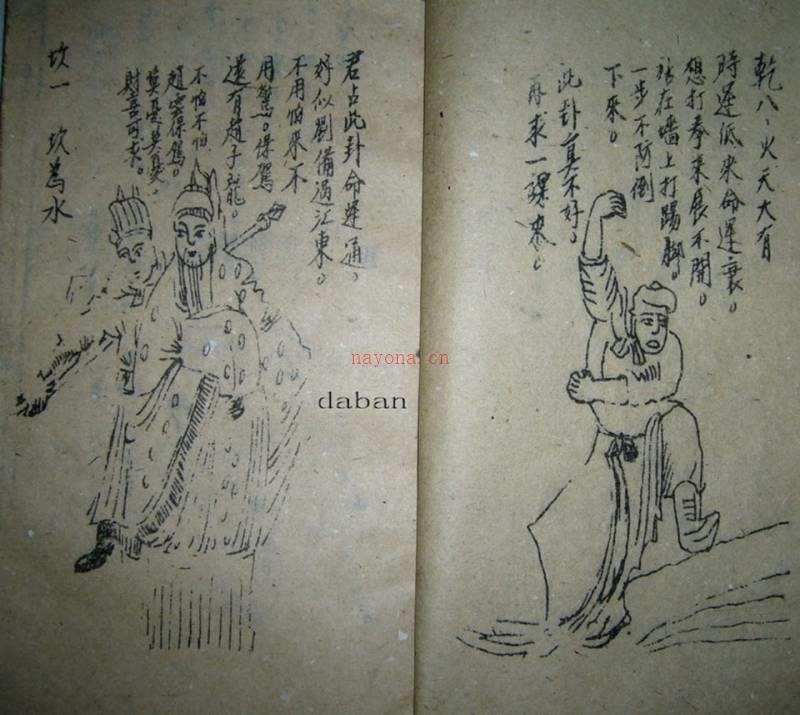 乾八、火天大有
時運低来命運衰。
想打拳来展不開。
站在墙上打踢脚。
一步不防倒
下來。
此卦真不好。
再求一課來。
君占此卦命運通。
好似劉備過江東。
不用怕來不
用驚。保駕
還有趙子龍。
不怕不怕
趙雲保駕。
莫憂莫憂。
財喜可求。
坎一 坎為水
nayona.cn
daban